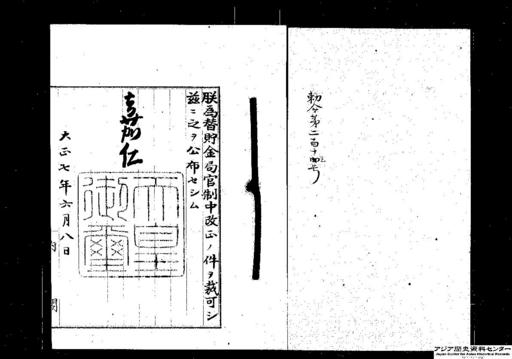 勅令第二百十四号
朕為替貯金局官制中改正ノ件ヲ裁可シ
茲ニ之ヲ公布セシム
嘉仁
天皇御璽
大正七年六月八日
内閣
アジア歴史資料センター
Japan Center for Asian Historical Records